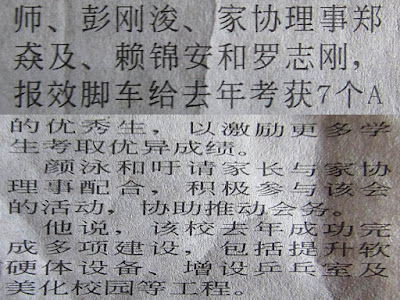 师、彭刚浚、家协理事郑
猋及、赖锦安和罗志刚，
报效脚车给去年考获7个A
的优秀生，以激励更多学
生考取优异成绩。
颜泳和吁请家长与家协
理事配合，积极参与该会
的活动，协助推动会务。
他说，该校去年成功完
成多项建设，包括提升软
硬体设备、增设乒乓室及
美化校园等工程。